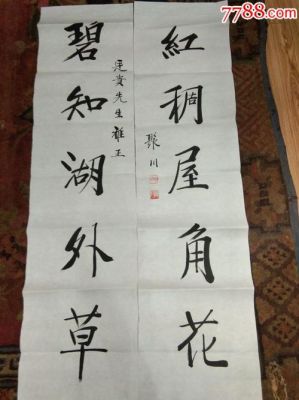 7788.com
紅稠屋角花
碧知湖外草
先生雅正
川